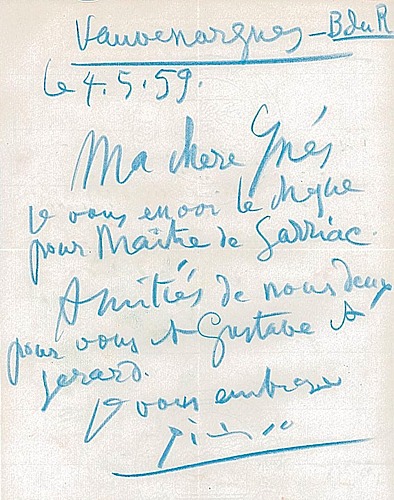 Vauvenargues - B du R
le 4.5.59.
Ma chere Ynés
je vous envoi le cheque
pour Maître de Sarriac.
Amitiés de nous deux
pour vous et Gustave et
Gerard.
je vous embrasse
Picasso